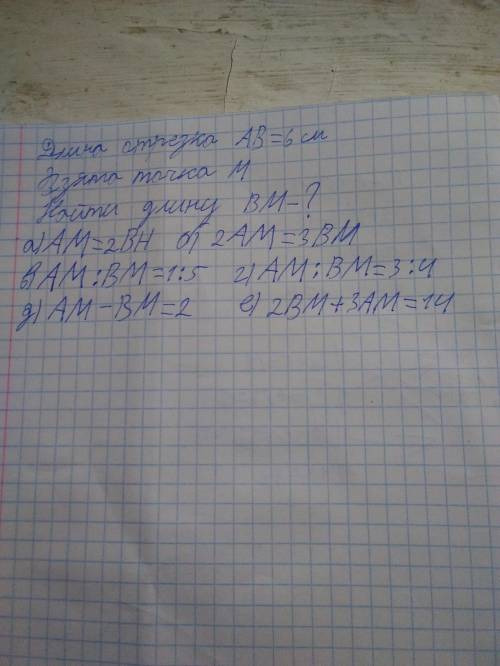 Длина отрезка AB=6 см
Взята точка M
Найти длину BM-?
а) AM=2BH б) 2AM=3BM
в) AM:BM=1:5 г) AM:BM=3:4
д) AM-BM=2 е) 2BM+3AM=14